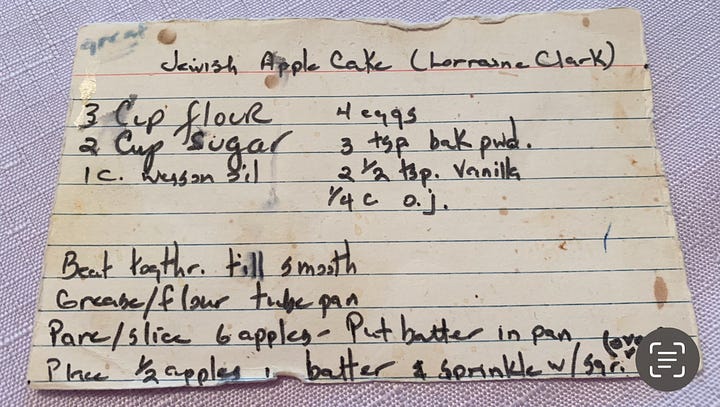 great
Jewish Apple Cake (Lorraine Clark)
3 Cup flour 4 eggs
2 Cup Sugar 3 tsp bak pwd.
1 c. Wesson oil 2 1/2 tsp. Vanilla
1/4 c o.j.
Beat togthr. till smooth
Grease/flour tube pan
Pare/slice 6 apples - Put batter in pan
Place 1/2 apples batter & sprinkle w/